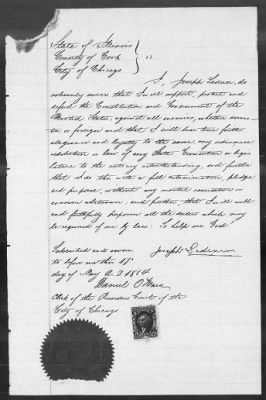 State of Illinois
County of Cook } ss.
City of Chicago
I, Joseph Lederer, do
solemnly swear that I will support, protect and
defend the Constitution and Government of the
United States, against all enemies, whether domes-
tic or foreign and that I will bear true faith
allegiance and loyalty to the same, any ordinance
resolution or law of any State Convention or Legis-
lature to the contrary notwithstanding and further
that I do this with a full determination, pledge
and purpose, without any mental reservation or
evasion whatsoever, and further, that I will well
and faithfully perform all the duties which may
be required of me by law. So help me God!
Subscribed and sworn Joseph Lederer
to before me this
day of May A.D 1864
Daniel O'Hara
Clerk of the Recorders Court of the
City of Chicago